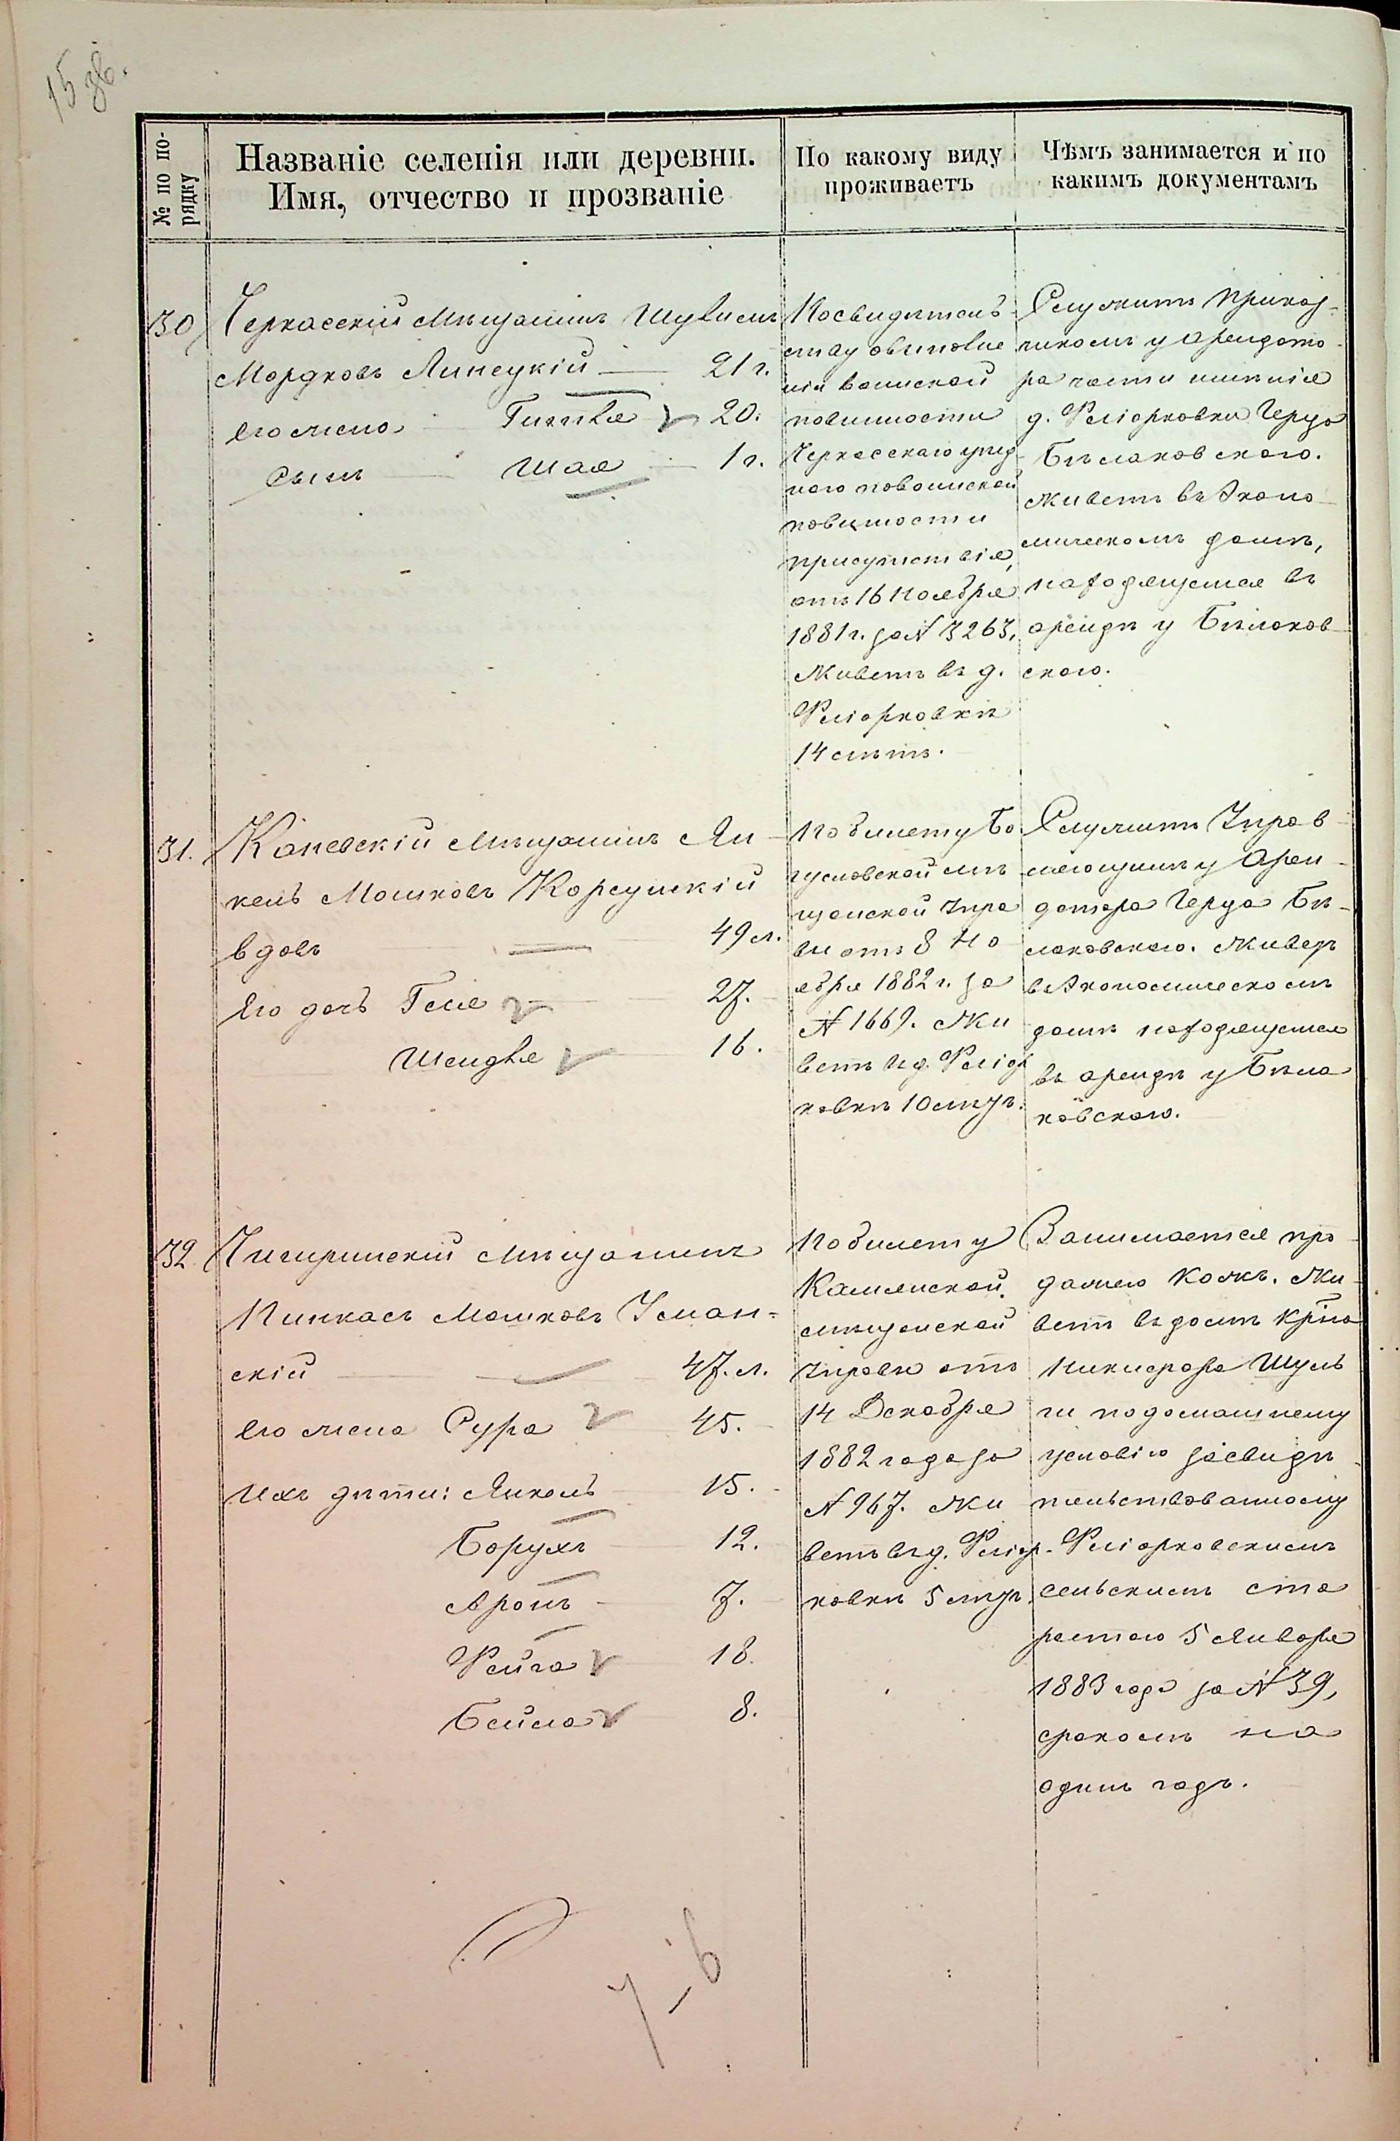 15 зв.
№ по по-
рядку
Названіе селенія или деревни.
Имя, отчество и прозваніе
По какому виду
проживаетъ
Чѣмъ занимается и по
какимъ документамъ
30
Черкасскій мѣщанинъ
Мордковъ Липецкій — 21 г.
Его жена Гитля 20.
Сынъ — Шая — 1 г.
По свидѣтель-
ству о выполне
ніи воинской
повинности
Черкасскаго уѣзд
наго по воинской
повинности
присутствія,
отъ 16 Ноября
1881 г. за № 3263,
живетъ въ д.
Фліорковкѣ
14 лѣтъ.
Служитъ приказ-
чикомъ у арендато-
ра части имѣнія
д. Фліорковки Герца
Бѣлаковского.
живетъ въ эконо
мическомъ домѣ,
находящемся въ
арендѣ у Бѣлаков
ского.
31.
Каневскій мѣщанинъ Ян-
кель Мошковъ Корсунскій
вдовъ — 49 л.
Его дочь Геня 27.
Шейдля 16.
По билету Бо
гуславской мѣ
щанской упра
вы отъ 8 Но
ября 1882 г. за
№ 1669. Жи
ветъ въ д. Фліор
ковкѣ 10 лѣтъ.
Служитъ Управ
ляющимъ у Арен-
датора Герца Бѣ-
лаковского. Живетъ
въ экономическомъ
домѣ находящемся
въ арендѣ у Бѣла
ковского.
32.
Чигиринскій мѣщанинъ
Пинкасъ Мошковъ Уман-
скій — 47. л.
Его жена Сура 45.
Ихъ дѣти: Янкель 15.
Борухъ 12.
Аронъ 7.
Фейга 18.
Бейла 8.
По билету
Каменской
мѣщанской
Управы отъ
14 Декабря
1882 года за
№ 967. Жи
ветъ въ д. Фліор-
ковкѣ 5 лѣтъ.
Занимается про
дажею кожъ. Жи-
ветъ въ домѣ кр-на
Никифора Шуль
ги по домашнему
условію засвидѣ
тельствованному
Фліорковскимъ
сельскимъ ста
ростою 5 Января
1883 года за № 39,
срокомъ на
одинъ годъ.
7-6